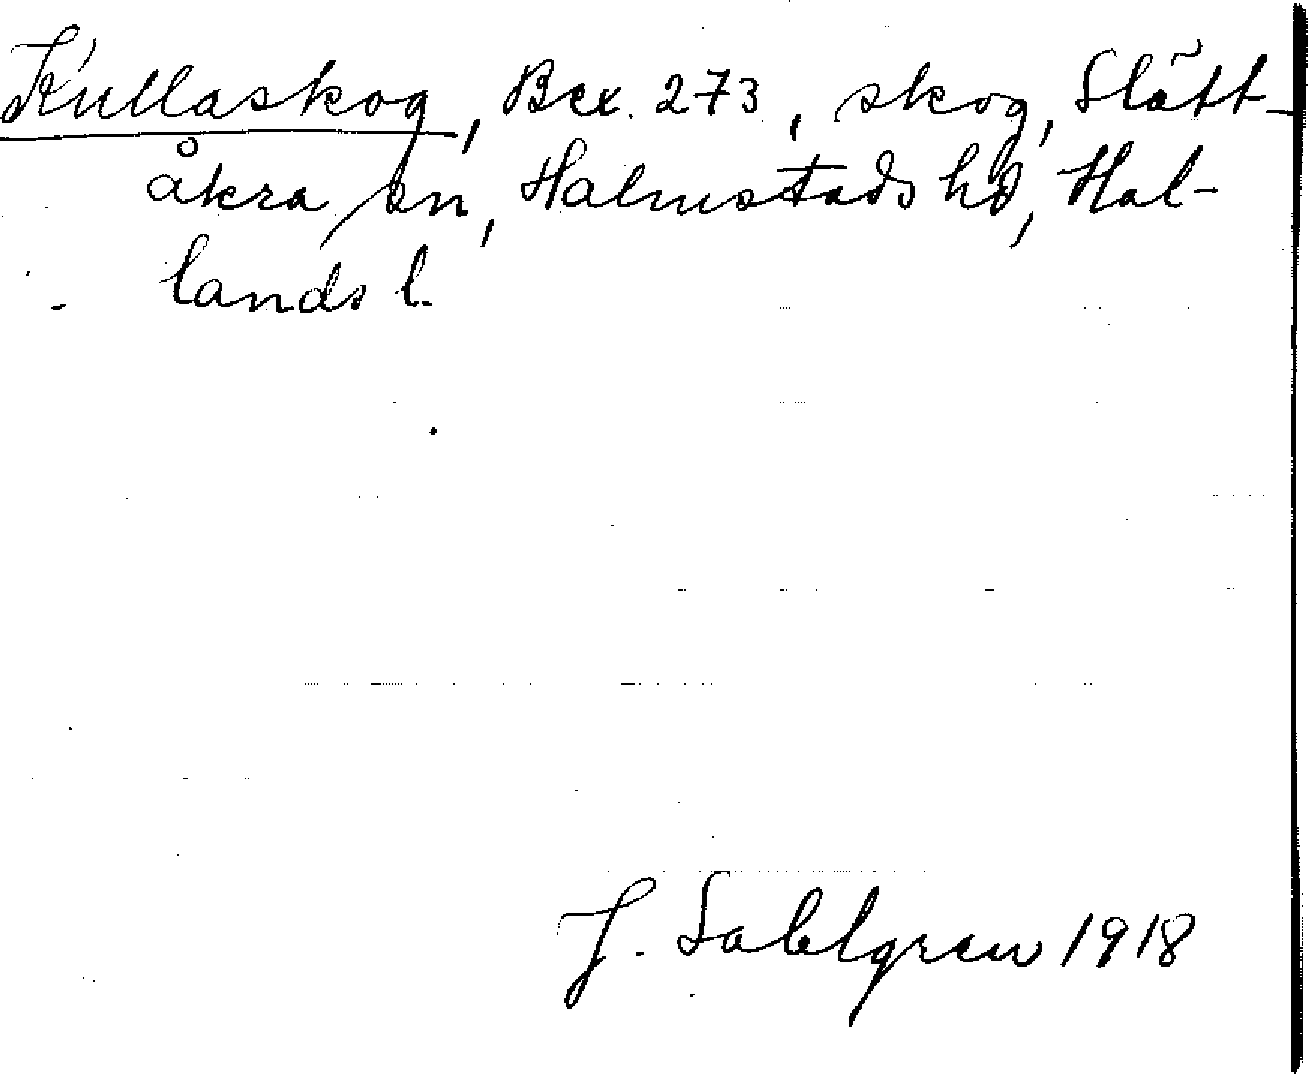 Kullaskog, Bex. 273, skog, Slätt-
åkra sn, Halmstads hd, Hal-
lands l.
J. Sahlgren 1918